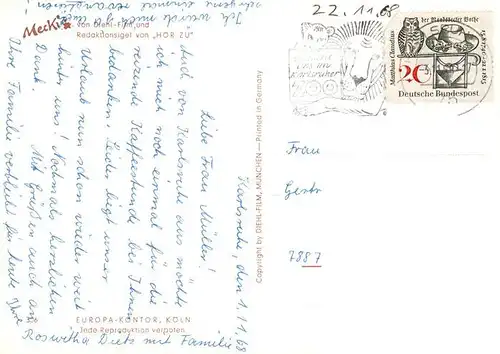 Mecki
von Diehl-Film und
Redaktionsigel von "HÖR ZU"
Karlsruhe, den 1.11.68
Liebe Frau Müller!
Auch von Karlsruhe aus möchte
ich mich noch einmal für die
reizende Kaffeestunde bei Ihnen
bedanken. Leider liegt unser
Urlaub nun schon wieder weit
hinter uns! Nochmals herzlichen
Dank. Mit Grüßen auch an
Ihre Familie verbleibt für heute Ihre
Roswitha Diets mit Familie
Ich würde mich ja
gerne einmal revanchieren
EUROPA-KONTOR, KÖLN
Jede Reproduktion verboten
Copyright by DIEHL-FILM, MÜNCHEN — Printed in Germany
22.11.68
Karlsruhe
Matthias Claudius
der Wandsbecker Bothe
20
Deutsche Bundespost
Frau
Gestr
7887